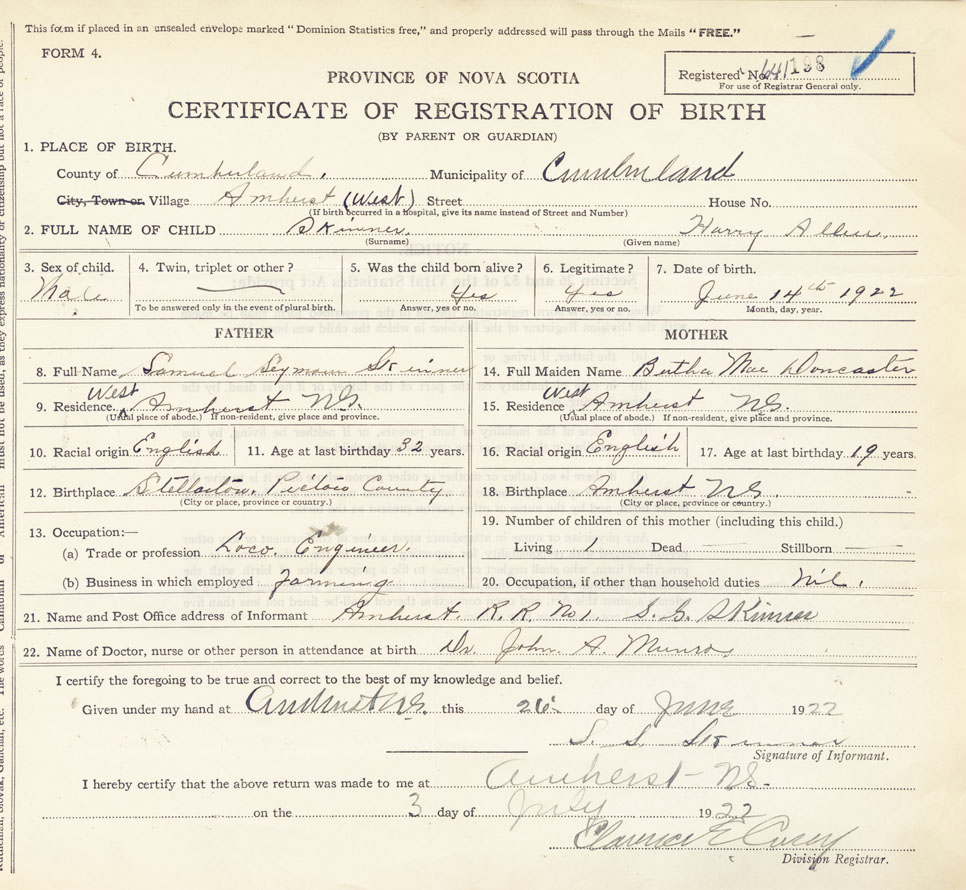 This form if placed in an unsealed envelope marked "Dominion Statistics free," and properly addressed will pass through the Mails "FREE."
FORM 4.
Registered No. 198
For use of Registrar General only.
PROVINCE OF NOVA SCOTIA
CERTIFICATE OF REGISTRATION OF BIRTH
(BY PARENT OR GUARDIAN)
1. PLACE OF BIRTH.
County of Cumberland. Municipality of Cumberland
City, Town or Village Amherst (West) Street House No.
(If birth occurred in a hospital, give its name instead of Street and Number)
2. FULL NAME OF CHILD Skinner. Harry Allen.
(Surname) (Given name)
3. Sex of child. 4. Twin, triplet or other? 5. Was the child born alive? 6. Legitimate? 7. Date of birth.
Male — yes yes June 14th 1922
To be answered only in the event of plural birth. Answer, yes or no. Answer, yes or no. Month, day, year.
FATHER MOTHER
8. Full Name Samuel Seymour Skinner 14. Full Maiden Name Bertha Mae Doncaster
9. Residence West Amherst N.S. 15. Residence West Amherst N.S.
(Usual place of abode.) If non-resident, give place and province. (Usual place of abode.) If non-resident, give place and province.
10. Racial origin English 11. Age at last birthday 32 years. 16. Racial origin English 17. Age at last birthday 19 years.
12. Birthplace Stellarton, Pictou County 18. Birthplace Amherst N.S.
(City or place, province or country.) (City or place, province or country.)
13. Occupation:— 19. Number of children of this mother (including this child.)
(a) Trade or profession Loco. Engineer. Living 1 Dead — Stillborn —
(b) Business in which employed Farming 20. Occupation, if other than household duties Nil.
21. Name and Post Office address of Informant Amherst. R.R. No 1. S. S. Skinner
22. Name of Doctor, nurse or other person in attendance at birth Dr. John A. Munro.
I certify the foregoing to be true and correct to the best of my knowledge and belief.
Given under my hand at Amherst N.S. this 26 day of June 1922
S. S. Skinner
Signature of Informant.
I hereby certify that the above return was made to me at Amherst N.S.
on the 3 day of July 1922
Clarence E
Division Registrar.